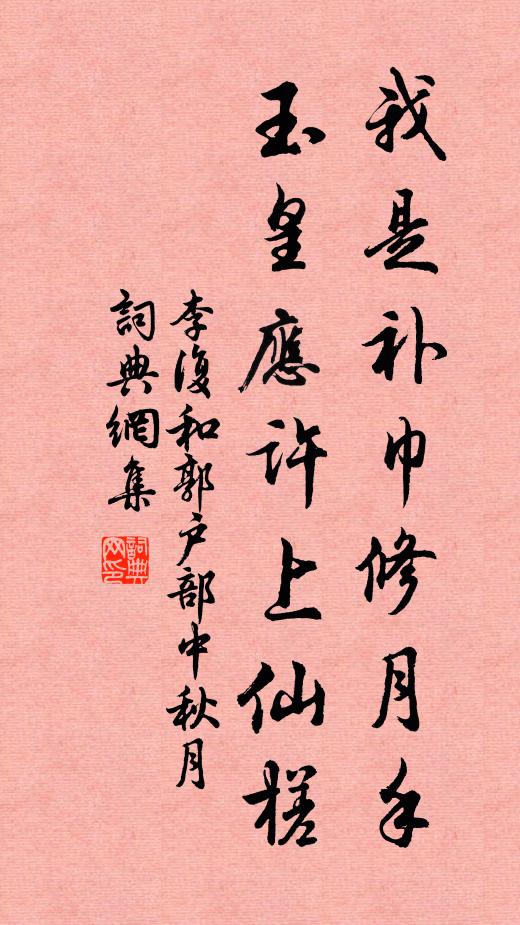 我是补巾修月手
玉皇應许上仙槎
李復和郭户部中秋月
詞典網集
詞典网印